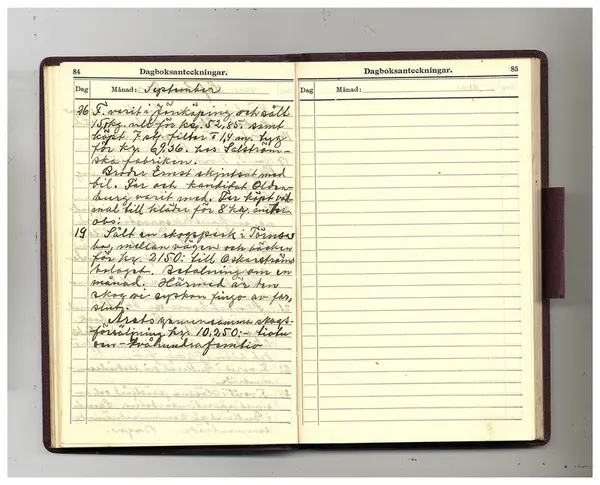 84
Dagboksanteckningar.
Dag
Månad: September
26 F. varit i Jönköping och sålt
15 kg. ull för kr. 52,85. samt
köpt 7 st. filtar o 1,4 m. tyg
för kr. 69.36. hos Selström-
ska fabriken.
Broder Ernst skjutsat med
bil. Far och kandidat Olden-
burg varit med. Far köpt
till kläder för 8 kr. metern
obs:
19 Sålt en skogspark i
bo, mellan vägen och bäcken
för kr. 2150: till Oskarströms
bolaget. Betalning om en
månad. Härmed är den
skog vi syskon fingo av far,
slut.
Årets gemensamma skogs-
försäljning kr. 10.250:- tiotu
sen - tvåhundrafemtio
85
Dagboksanteckningar.
Dag
Månad: